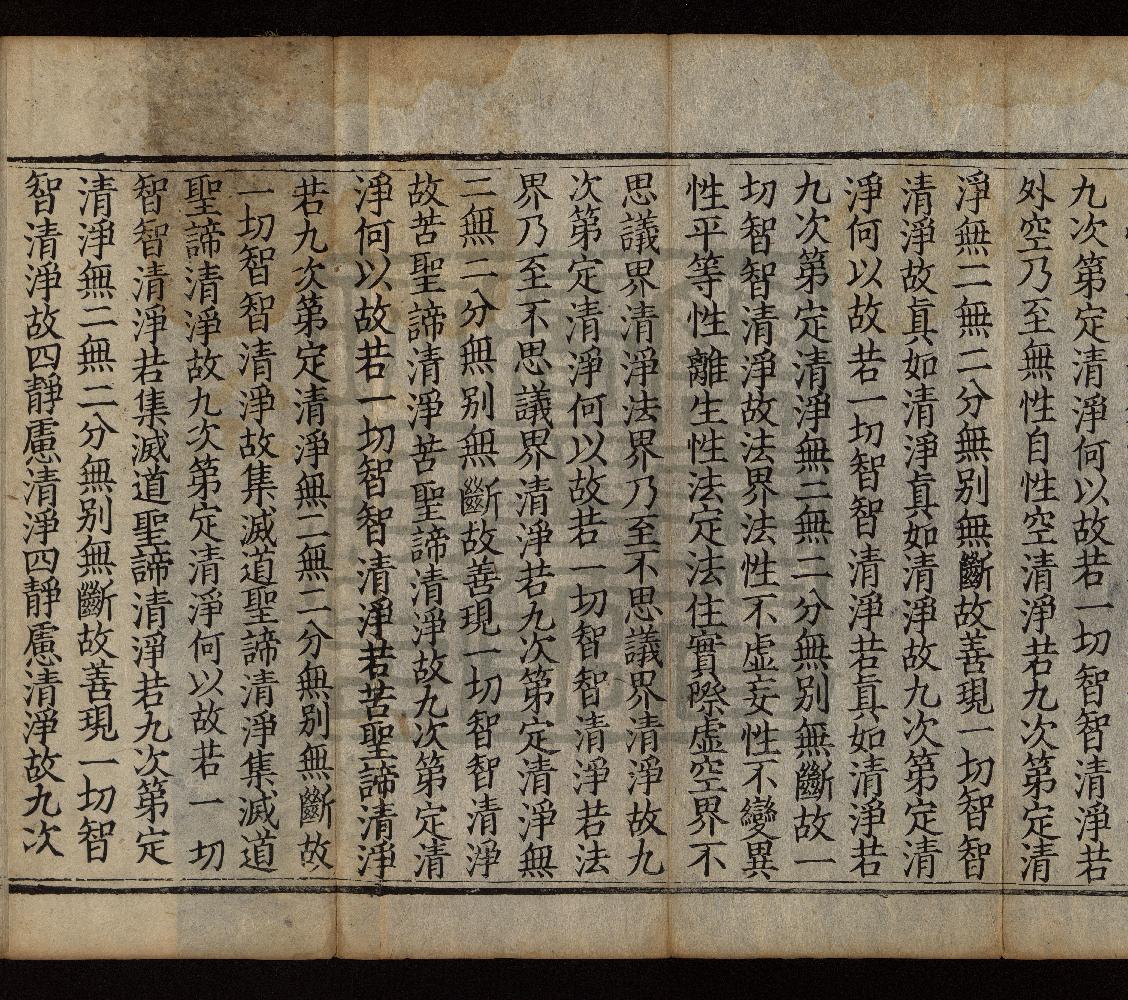 九次第定清淨何以故若一切智智清淨若
外空乃至無性自性空清淨若九次第定清
淨無二無二分無別無斷故善現一切智智
清淨故真如清淨真如清淨故九次第定清
淨何以故若一切智智清淨若真如清淨若
九次第定清淨無二無二分無別無斷故一
切智智清淨故法界法性不虛妄性不變異
性平等性離生性法定法住實際虛空界不
思議界清淨法界乃至不思議界清淨故九
次第定清淨何以故若一切智智清淨若法
界乃至不思議界清淨若九次第定清淨無
二無二分無別無斷故善現一切智智清淨
故苦聖諦清淨苦聖諦清淨故九次第定清
淨何以故若一切智智清淨若苦聖諦清淨
若九次第定清淨無二無二分無別無斷故
一切智智清淨故集滅道聖諦清淨集滅道
聖諦清淨故九次第定清淨何以故若一切
智智清淨若集滅道聖諦清淨若九次第定
清淨無二無二分無別無斷故善現一切智
智清淨故四靜慮清淨四靜慮清淨故九次